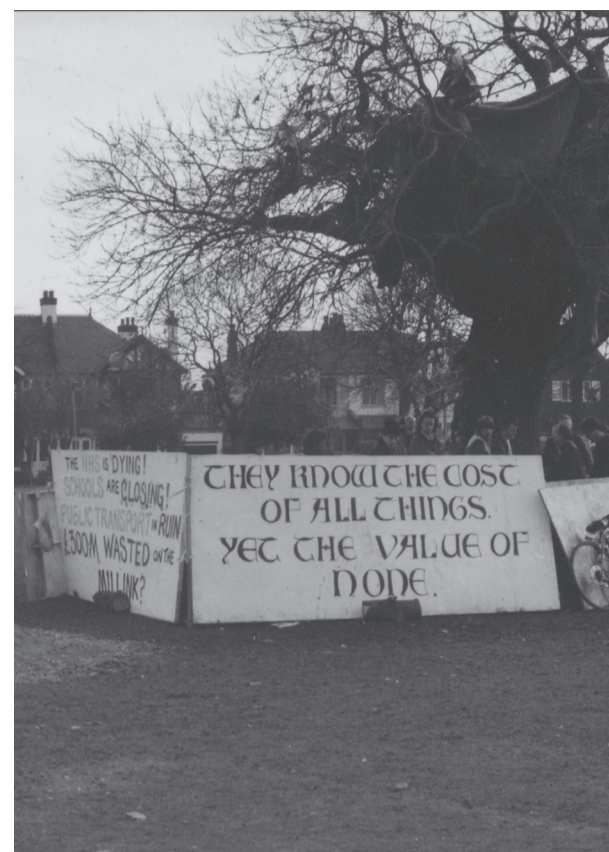 THE NHS IS DYING!
SCHOOLS ARE CLOSING!
PUBLIC TRANSPORT IN RUIN
£300M WASTED ON THE
M11 LINK?
THEY KNOW THE COST
OF ALL THINGS.
YET THE VALUE OF
NONE.